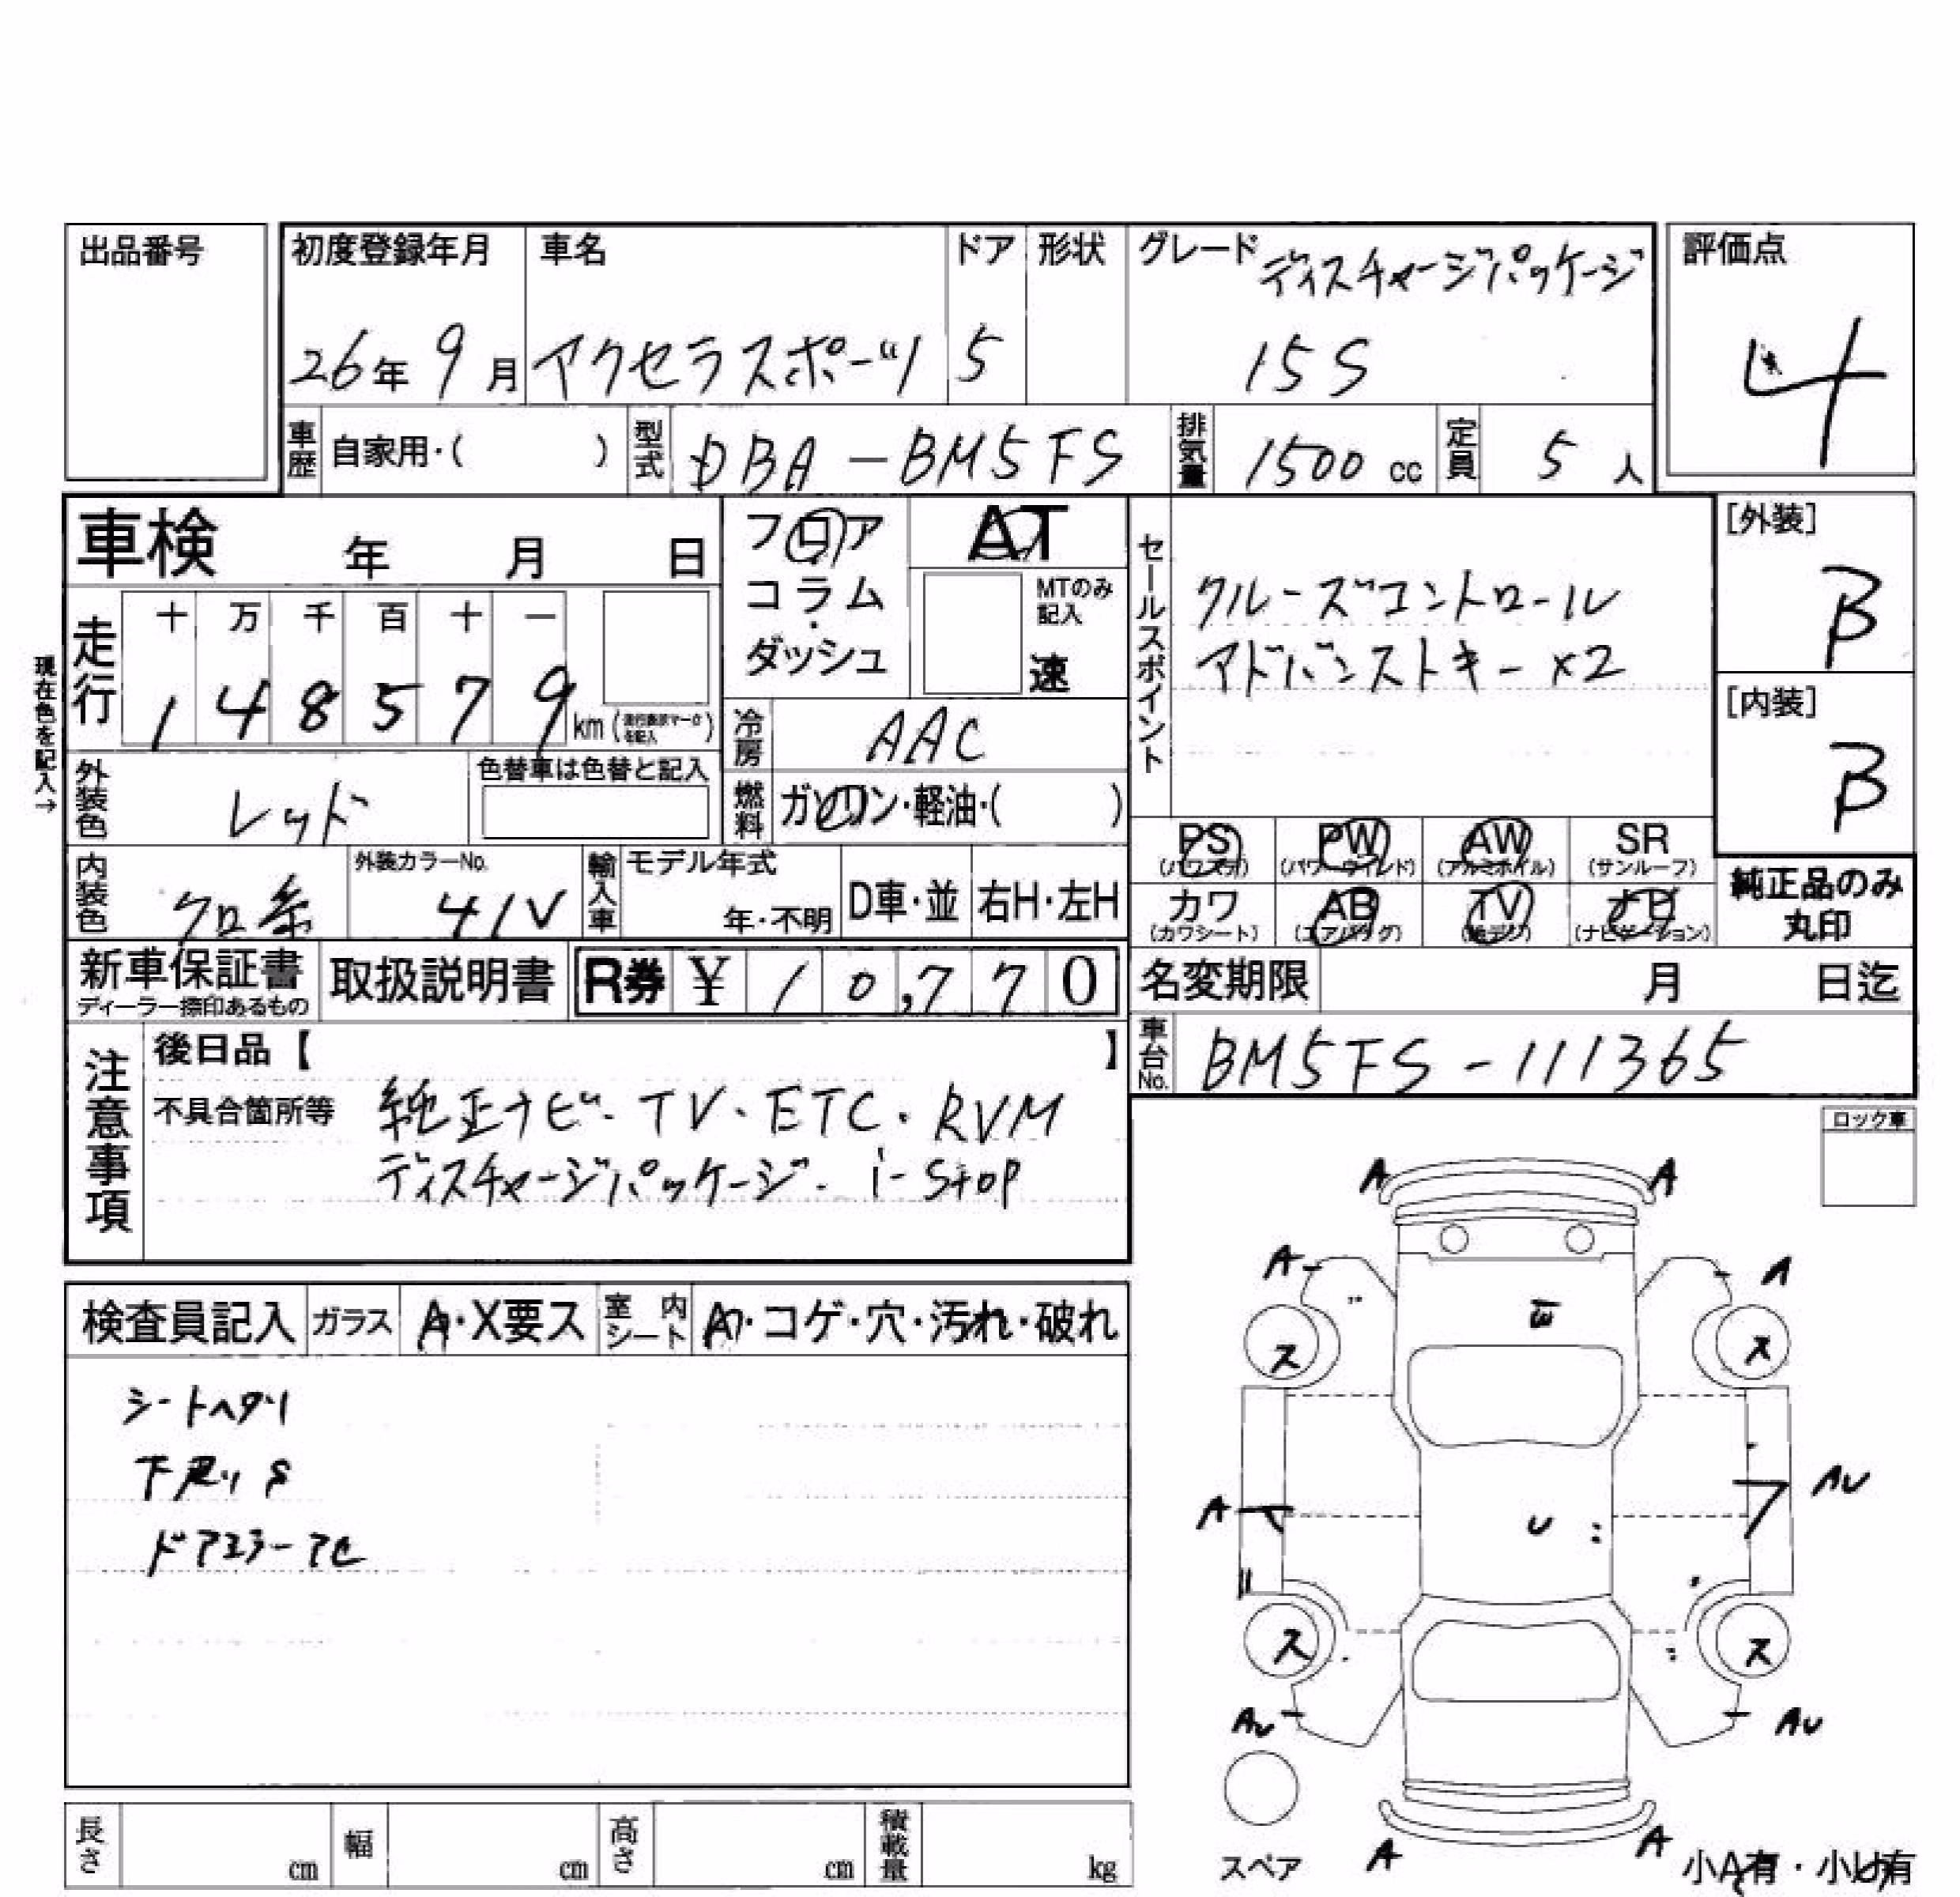 出品番号
初度登録年月 車名 ドア 形状 グレード ディスチャージパッケージ 評価点
26年 9月 アクセラスポーツ 5 15S 4
車歴 自家用・( ) 型式 DBA-BM5FS 排気量 1500 cc 定員 5 人
車検 年 月 日
フロア
コラム
・
ダッシュ
AT
MTのみ
記入
速
セールスポイント
クルーズコントロール
アドバンストキー ×2
[外装]
B
[内装]
B
現在色を記入→
走行 十 万 千 百 十 一
1 4 8 5 7 9 km (
冷房 AAC
外装色 レッド 色替車は色替と記入
燃料 ガソリン・軽油・( )
PS PW AW SR
(パワステ) (パワーウィンド) (アルミホイル) (サンルーフ)
カワ AB TV ナビ
(カワシート) (エアバッグ) (地デジ) (ナビゲーション)
純正品のみ
丸印
内装色 クロ系 外装カラーNo. 41V 輸入車 モデル年式 年・不明 D車・並 右H・左H
新車保証書 取扱説明書 R券 ¥ 10,770
ディーラー捺印あるもの
名変期限 月 日迄
車台No. BM5FS-111365
注意事項
後日品【 】
不具合箇所等 純正ナビ・TV・ETC・RVM
ディスチャージパッケージ・i-stop
ロック車
検査員記入 ガラス A・X要ス 室内シート ・コゲ・穴・汚れ・破れ
シートヘタリ
下廻りS
ドアミラーA
A A
A A
ス ス
A U AU
ス ス
AU AU
A A
スペア
小A有・小U有
長さ cm 幅 cm 高さ cm 積載量 kg